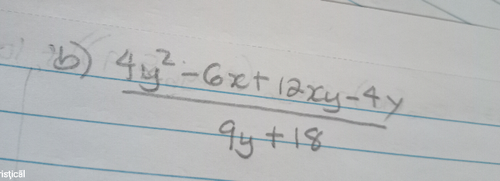 b) 4y² - 6x + 12xy - 4y
9y + 18
ristical